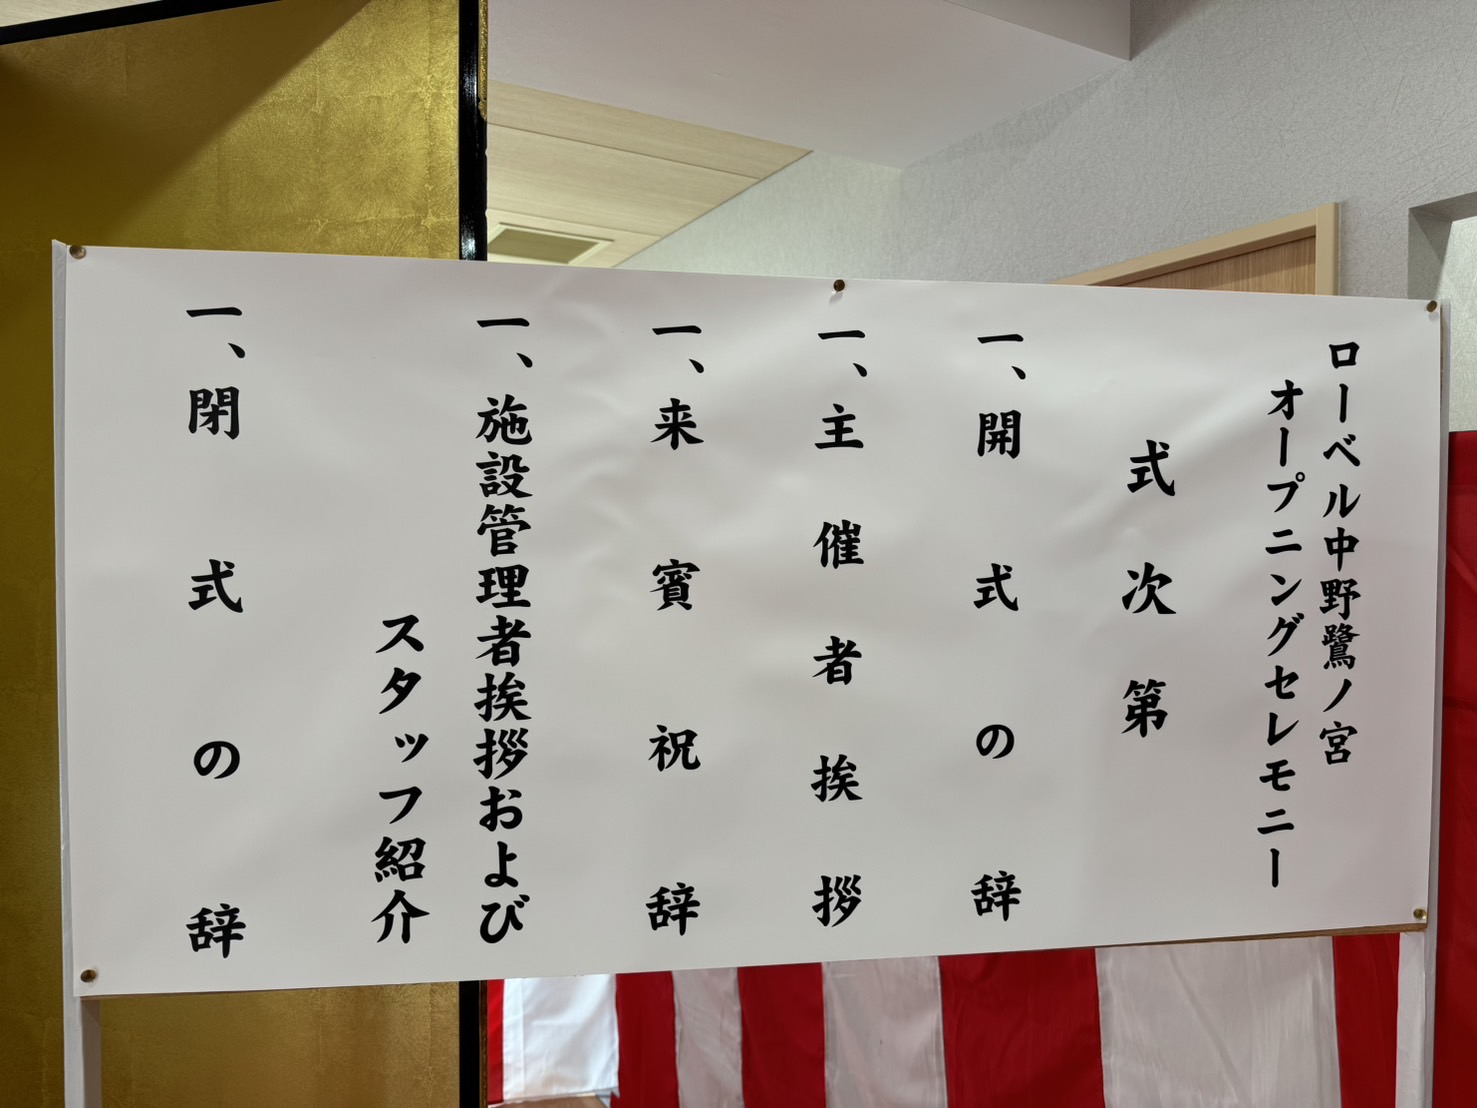 ローベル中野鷺ノ宮
オープニングセレモニー
式次第
一、開式の辞
一、主催者挨拶
一、来賓祝辞
一、施設管理者挨拶および
スタッフ紹介
一、閉式の辞